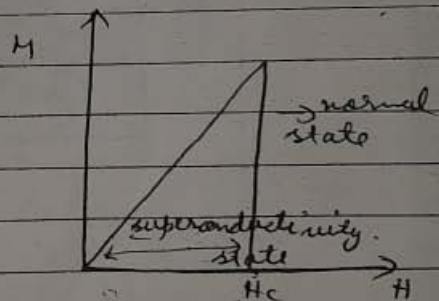 M
normal
state
superonductivity.
state
Hc
H